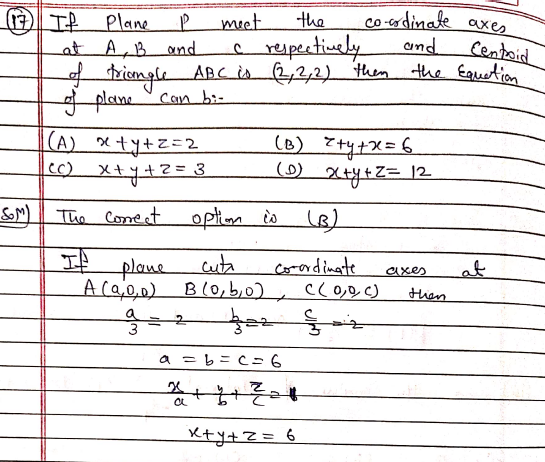 (17) If Plane P meet the co-ordinate axes
at A, B and C respectively and Centroid
of triangle ABC is (2,2,2) then the Equation
of plane can b:-
(A) x + y + z = 2 (B) z+y+x = 6
(C) x + y + z = 3 (D) x+y+z = 12
Soln) The correct option is (B)
If plane cuts co-ordinate axes at
A(a,0,0) B(0,b,0), C(0,0,c) then
a/3 = 2 b/3 = 2 c/3 = 2
a = b = c = 6
x/a + y/b + z/c = 1
x+y+z = 6